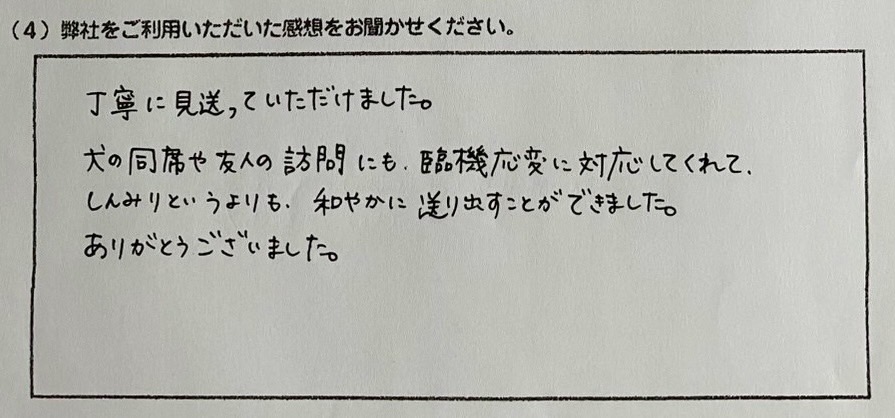 (4) 弊社をご利用いただいた感想をお聞かせください。
丁寧に見送っていただけました。
犬の同席や友人の訪問にも、臨機応変に対応してくれて、
しんみりというよりも、和やかに送り出すことができました。
ありがとうございました。